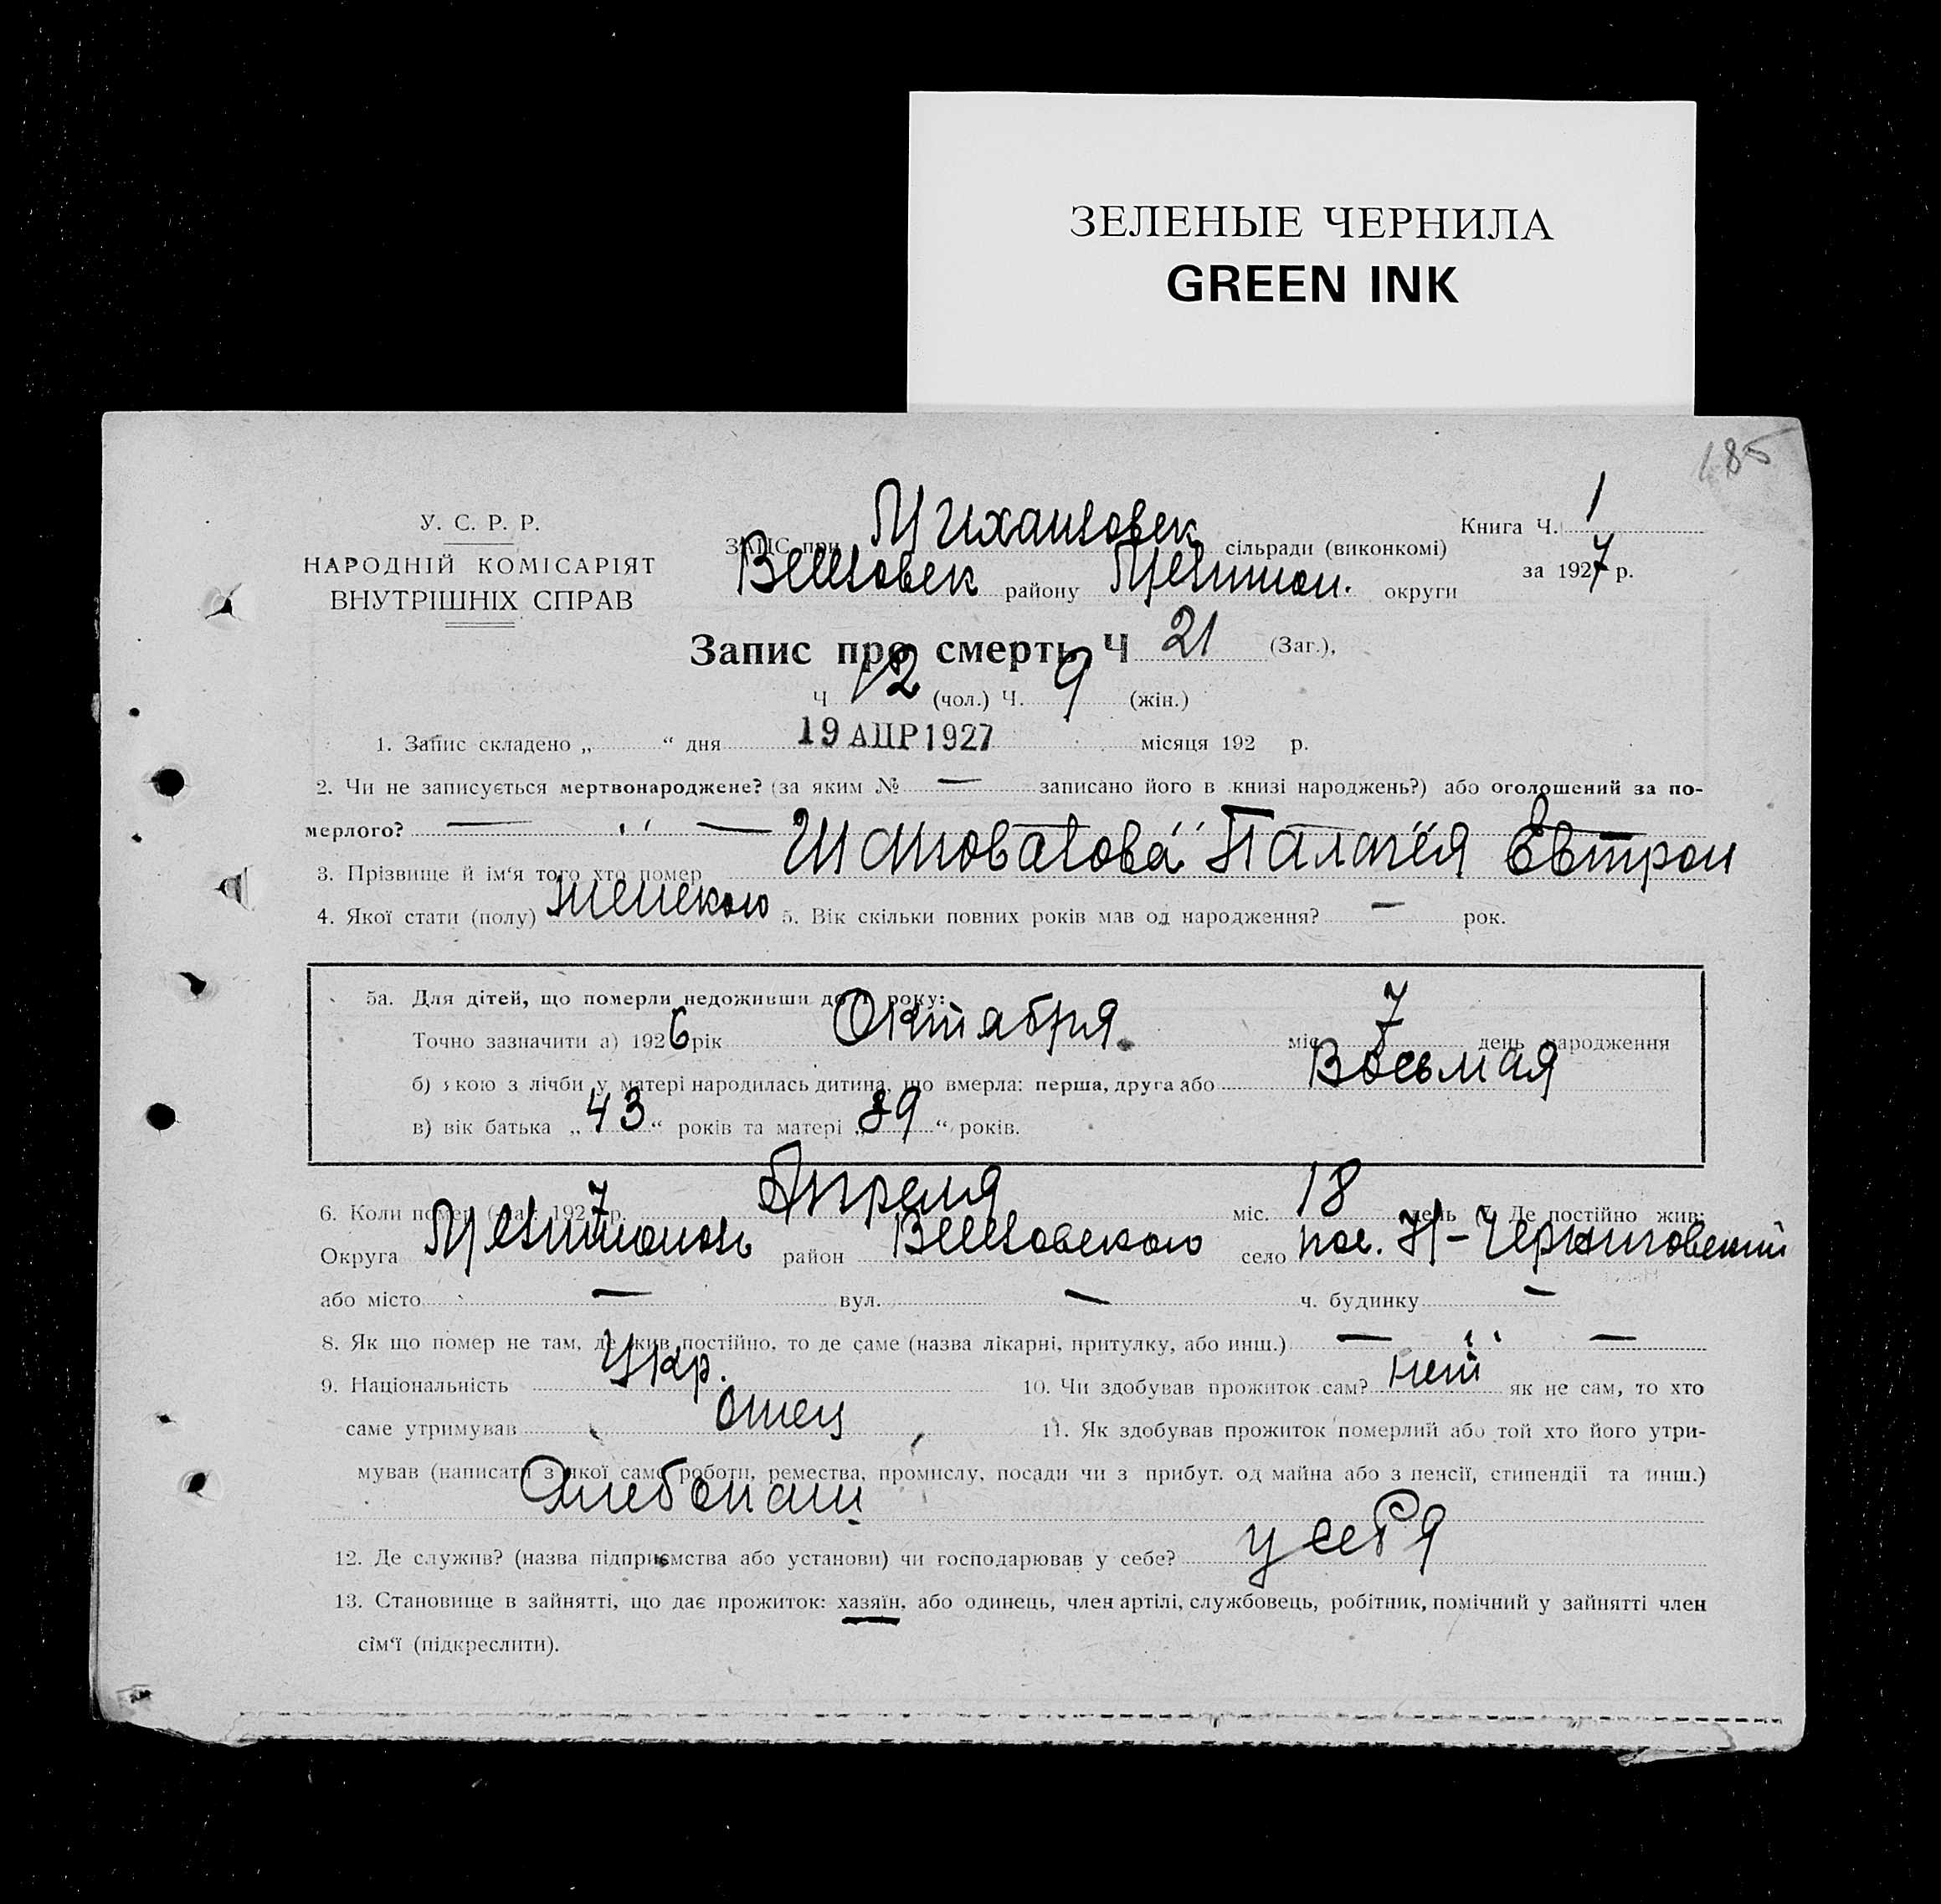 ЗЕЛЕНЫЕ ЧЕРНИЛА
GREEN INK
185
У. С. Р. Р.
НАРОДНІЙ КОМІСАРІЯТ
ВНУТРІШНІХ СПРАВ
Книга Ч. 1
за 1927 р.
ЗАПИС при Михайловск сільради (виконкомі)
району Мелитоп. округи
Запис про смерть Ч 21 (Заг.),
Ч 12 (чол.) Ч. 9 (жін.)
1. Запис складено „ “ дня 19 АПР 1927 місяця 192 р.
2. Чи не записується мертвонароджене? (за яким № — записано його в книзі народжень?) або оголошений за по-
мерлого? — ״ —
3. Прізвище й ім‘я того хто помер Шаповалова Палагея Евтроп
4. Якої стати (полу) женского 5. Вік скільки повних років мав од народження? — рок.
5а. Для дітей, що померли недоживши до 1 року:
Точно зазначити а) 1926 рік Октября міс. 7 день народження
б) якою з лічби у матері народилась дитина, що вмерла: перша, друга або Восьмая
в) вік батька „43“ років та матері „39“ років.
6. Коли помер 1927 р. Апреля міс. 18 день 7. Де постійно жив:
Округа Мелитополь район село пос. Н-Черниговский
або місто — вул. — ч. будинку —
8. Як що помер не там, де жив постійно, то де саме (назва лікарні, притулку, або инш.) — ״ —
9. Національність Укр. 10. Чи здобував прожиток сам? нет як не сам, то хто
саме утримував отец 11. Як здобував прожиток померлий або той хто його утри-
мував (написати з якої саме роботи, ремества, промислу, посади чи з прибут. од майна або з пенсії, стипендії та инш.)
Хлебопаш
12. Де служив? (назва підприємства або установи) чи господарював у себе? у себя
13. Становище в зайнятті, що дає прожиток: хазяїн, або одинець, член артілі, службовець, робітник, помічний у зайнятті член
сім‘ї (підкреслити).